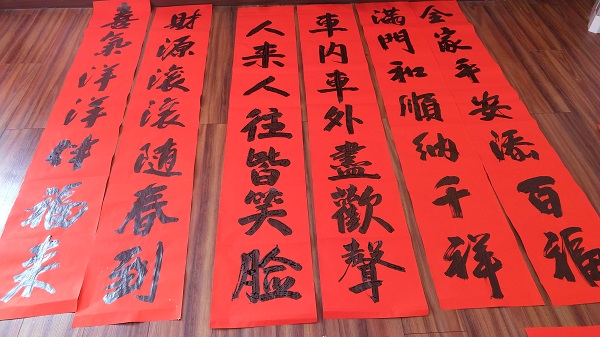 全家平安添百福
滿門和順纳千祥
車内車外盡歡聲
人来人往皆笑脸
財源滚滚随春到
喜氣洋洋伴福来